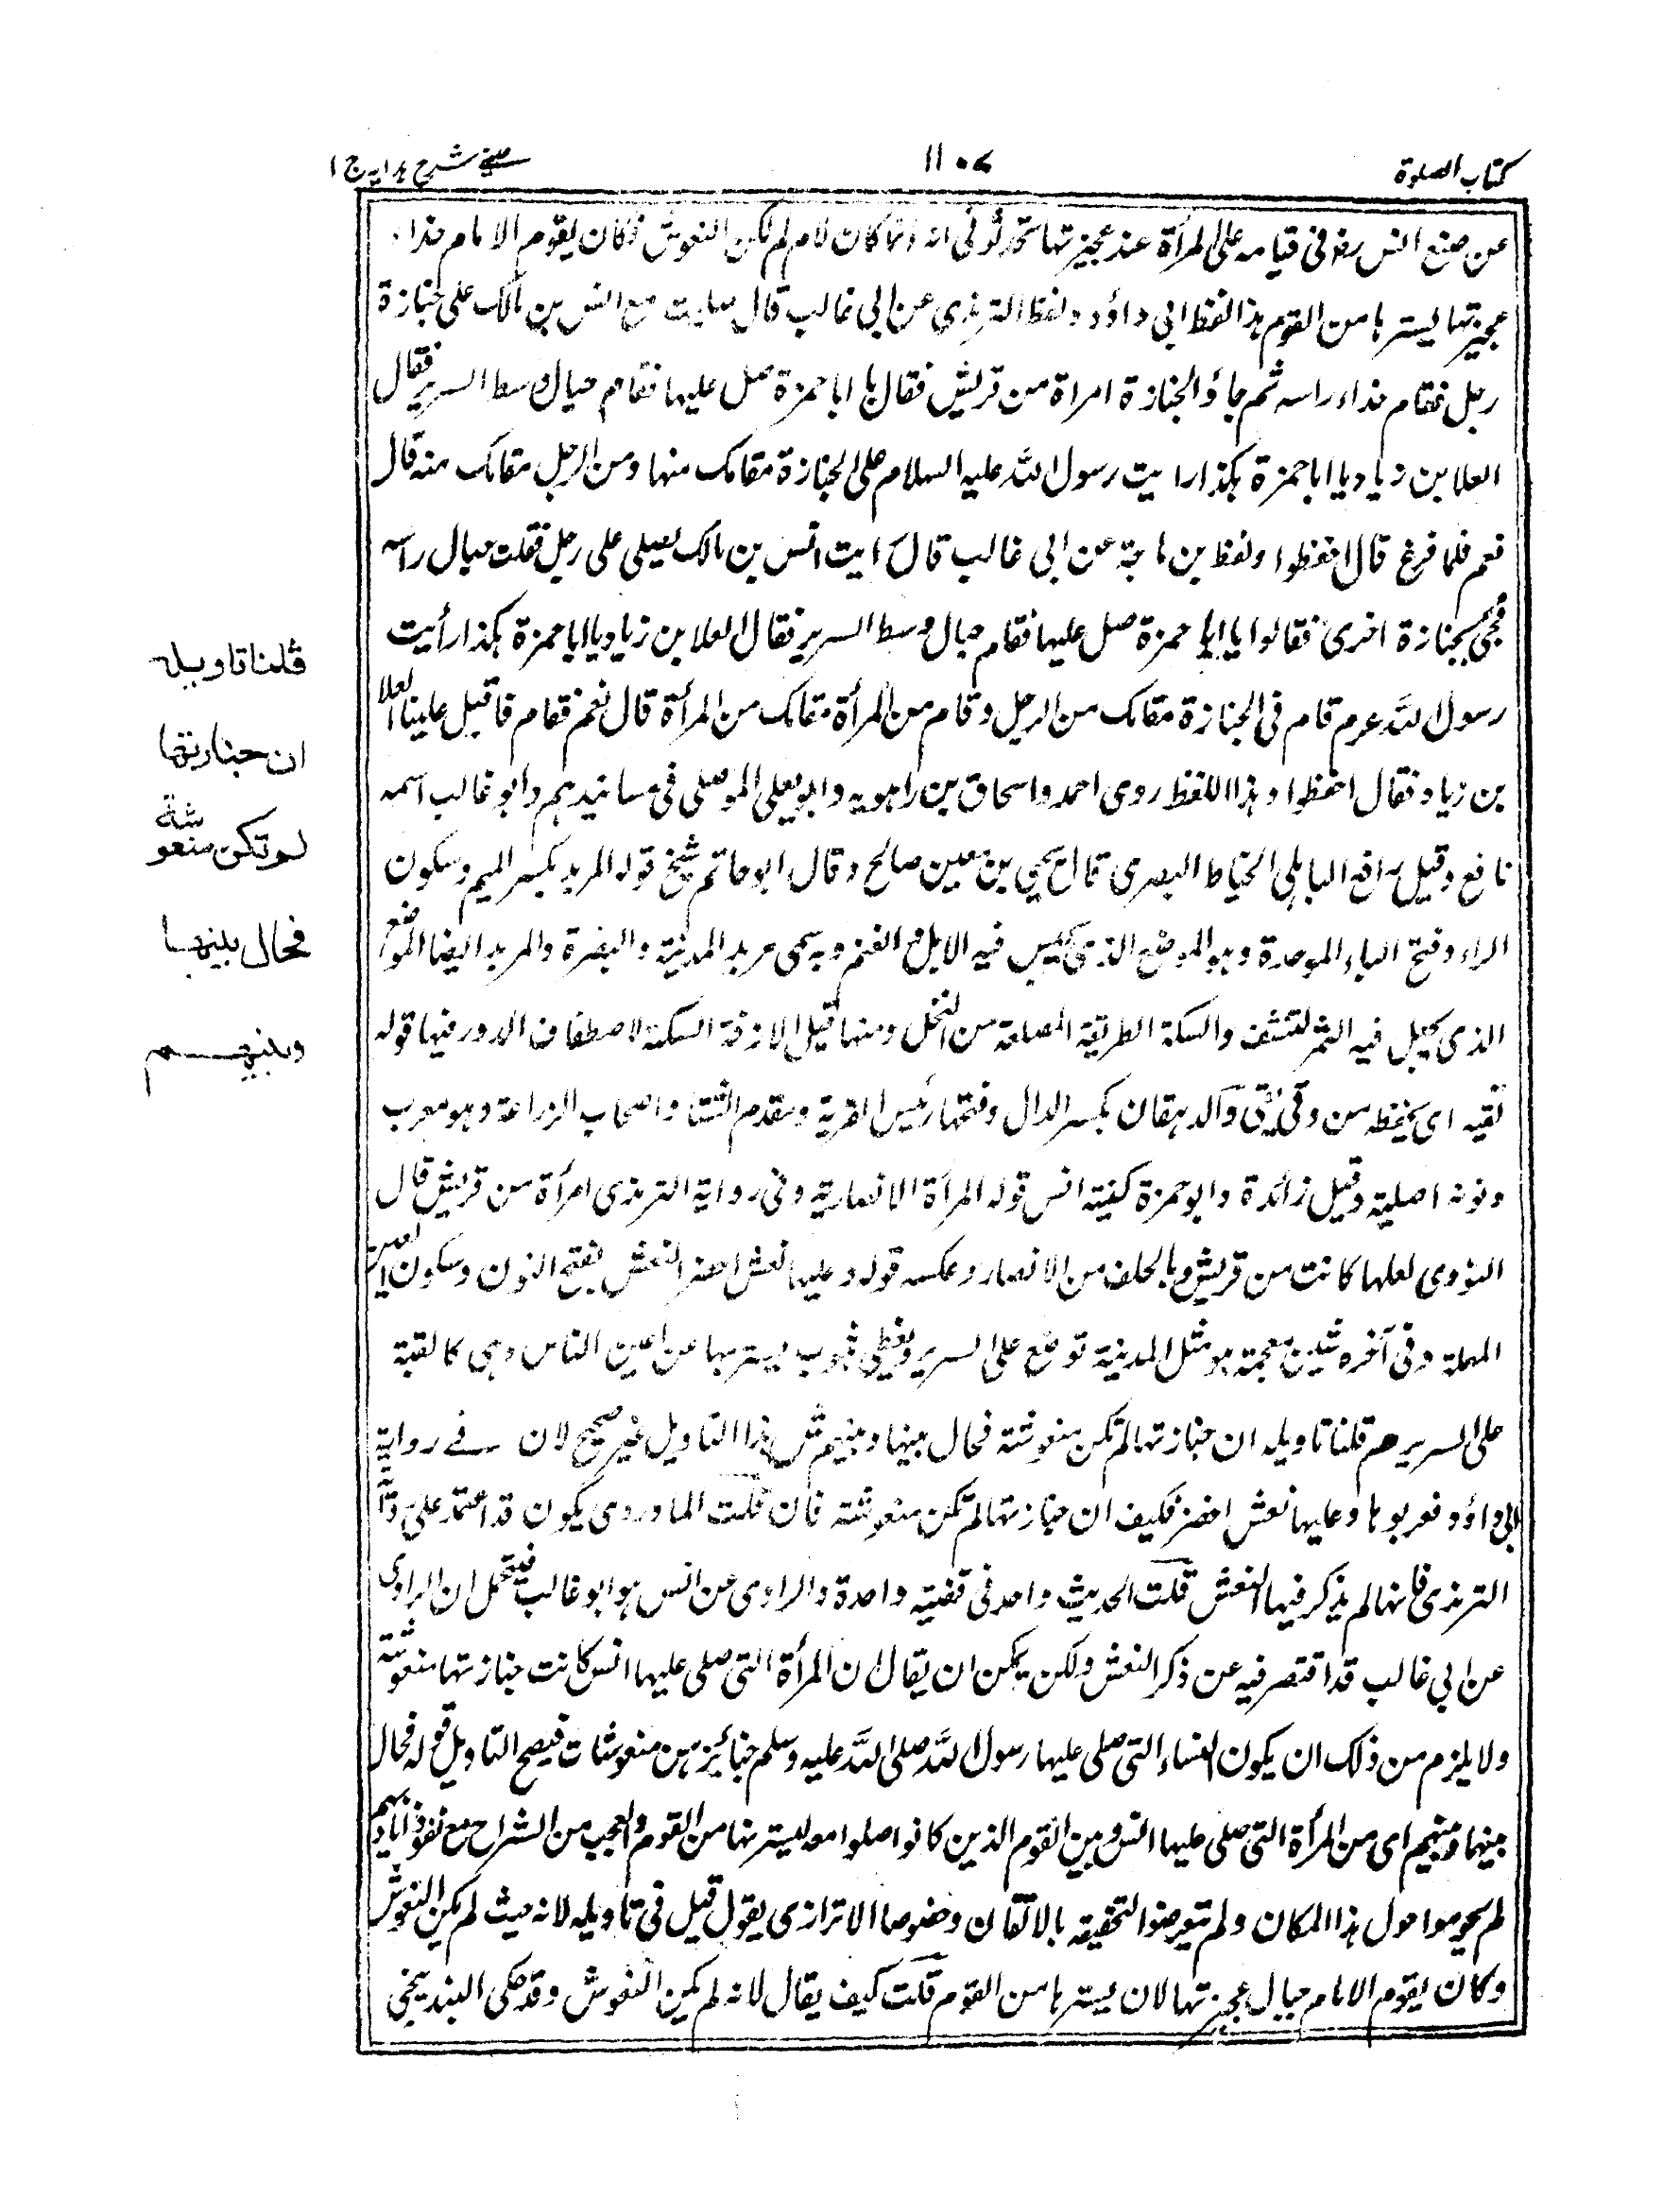 كتاب الصلوة
١١٠٧
عينى شرح هدايه ج ١
عن صنع انس رض فى قيامه على المرأة عند عجيزتها فحدثونى انه انما كان لانه لم تكن النعوش فكان يقوم الامام حذاء
عجيزتها يسترها من القوم هذا لفظ ابى داؤد ولفظ الترمذى عن ابى غالب قال صليت مع انس بن مالك على جنازة
رجل فقام حذاء راسه ثم جاؤا بجنازة امراة من قريش فقال يا ابا حمزة صل عليها فقام حيال وسط السرير فقال
العلا بن زياد يا ابا حمزة هكذا رايت رسول الله عليه السلام على الجنازة مقامك منها ومن الرجل مقامك منه قال
نعم فلما فرغ قال احفظوا ولفظ بن ماجة عن ابى غالب قال رايت انس بن مالك يصلى على رجل فقلت حيال راسه
فجئ بجنازة اخرى فقالوا يا ابا حمزة صل عليها فقام حيال وسط السرير فقال العلا بن زياد يا ابا حمزة هكذا رأيت
رسول الله عرم قام فى الجنازة مقامك من الرجل وقام من المرأة مقامك من المرأة قال نعم فقام فاقبل علينا العلا
بن زياد فقال احفظوا وبهذا اللفظ روى احمد واسحاق بن راهويه وابو يعلى الموصلى فى مسانيدهم وابو غالب اسمه
نافع وقيل رافع الباهلى الخياط البصرى قال يحيى بن معين صالح وقال ابو حاتم شيخ قوله المربد بكسر الميم وسكون
الراء وفتح الباء الموحدة وهو الموضع الذى يحبس فيه الابل والغنم وبه سمى مربد المدينة والبصرة والمربد ايضا الموضع
الذى يجعل فيه التمر لتنشف والسكة الطريقة المصلعة من النخل ومنها قيل الازقة السكة لاصطفاف الدور فيها قوله
تقيه اى يحفظه من وقى يقى والدهقان بكسر الدال وفتحها رئيس القرية ومقدم التنا واصحاب الزراعة وهو معرب
ونونه اصلية وقيل زائدة وابو حمزة كنية انس قوله المرأة الانصارية وفى رواية الترمذى امرأة من قريش قال
النووى لعلها كانت من قريش وبالحلف من الانصار وعكسه قوله وعليها نعش اخضر النعش بفتح النون وسكون العين
المهملة وفى آخره شين معجمة هو مثل المدنية توضع على السرير ويغطى بثوب يسترها عن اعين الناس وهى كالقبة
على السرير هم قلنا تاويله ان جنازتها لم تكن منعوشة فحال بينها وبينهم ش هذا التاويل غير صحيح لان فى رواية
ابى داؤد فقربوها وعليها نعش اخضر فكيف ان جنازتها لم تكن منعوشة فان قلت الماوردى يكون قد اعتمد على رواية
الترمذى فانها لم يذكر فيها النعش قلت الحديث واحد فى قضية واحدة والراوى عن انس هو ابو غالب فيتحمل ان الراوى
عن ابى غالب قد اقتصر فيه عن ذكر النعش ولكن يمكن ان يقال ان المرأة التى صلى عليها انس كانت جنازتها منعوشة
ولا يلزم من ذلك ان يكون النساء التى صلى عليها رسول الله صلى الله عليه وسلم جنائزهن منعوشات فيصح التاويل قوله فحال
بينها وبينهم اى من المرأة التى صلى عليها انس وبين القوم الذين كانوا صلوا معه ليسترنها من القوم والعجب من الشراح مع نفوذ اياديهم
لم يحوموا حول هذا المكان ولم يتعرضوا لتحقيقه بالاتقان وخصوصا الاترازى يقول قيل فى تاويله لانه حيث لم يكن النعوش
وكان يقوم الامام حيال عجيزتها لان يسترها من القوم قلت كيف يقال لانه لم يكن النعوش وقد حكى البندنيجى
قلنا تاويله
ان جنازتها
لم تكن منعوشة
فحال بينها
وبينهم